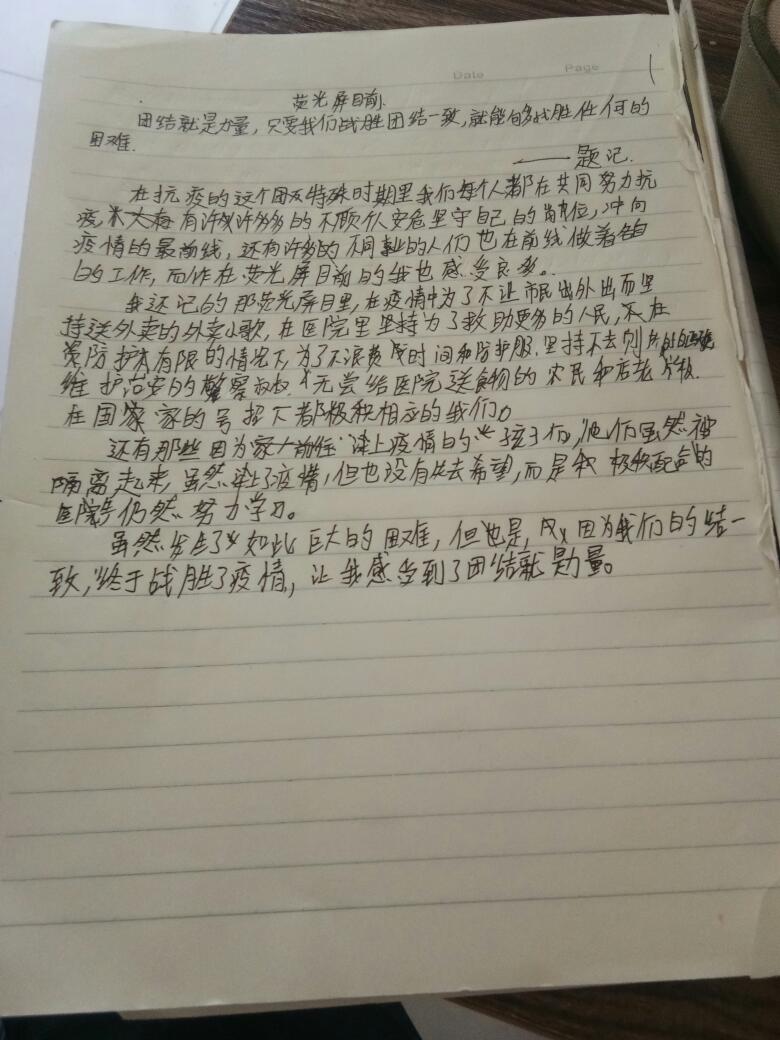 Date Page 1
荧光屏目前
团结就是力量，只要我们战胜团结一致，就能够战胜任何的
困难.
——题记.
在抗疫的这个特殊时期里我们每个人都在共同努力抗
疫,有许许多多的不顾个人安危坚守自己的岗位，冲向
疫情的最前线，还有许多的不同的人们也在前线做着
的工作，而作在荧光屏目前的我也感受良多。
我还记的那荧光屏目里，在疫情中为了不让市民出外出而坚
持送外卖的外卖小歌，在医院里坚持为了救助更多的人民，在
资防护有限的情况下,为了不浪费时间和防护服.坚持不去
维护治安的警察叔叔.无尝给医院送食物的农民和店老板.
在国家的号招下都极积相应的我们。
还有那些因为染上疫情的孩子们,他们虽然被
隔离起来,虽然染上了疫情，但也没有失去希望，而是极积配合的
医院仍然努力学习。
虽然发生了如此巨大的困难，但也是,因为我们的结一
致，终于战胜了疫情，让我感受到了团结就是力量。